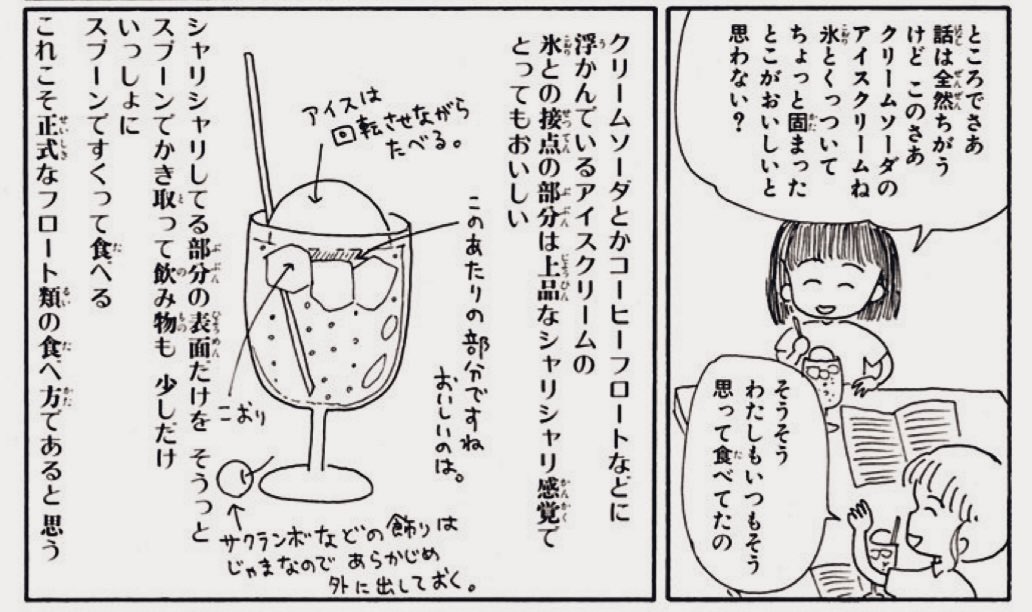 ところでさあ
話は全然ちがう
けど このさあ
クリームソーダの
アイスクリームね
氷とくっついて
ちょっと固まった
とこがおいしいと
思わない?
そうそう
わたしもいつもそう
思って食べてたの
クリームソーダとかコーヒーフロートなどに
浮かんでいるアイスクリームの
氷との接点の部分は上品なシャリシャリ感覚で
とってもおいしい
アイスは
回転させながら
たべる。
このあたりの部分ですね
おいしいのは。
こおり
サクランボなどの飾りは
じゃまなので あらかじめ
外に出しておく。
シャリシャリしてる部分の表面だけを そうっと
スプーンでかき取って飲み物も 少しだけ
いっしょに
スプーンですくって食べる
これこそ正式なフロート類の食べ方であると思う